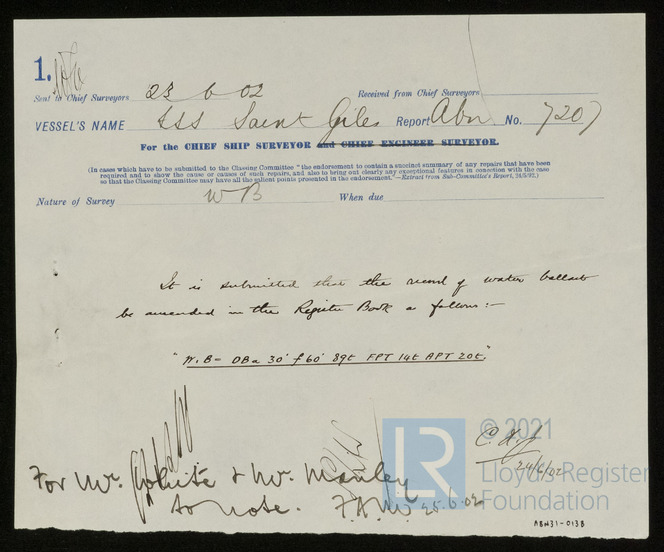 1.
Sent to Chief Surveyors 23 6 02 Received from Chief Surveyors
VESSEL'S NAME SSS Saint Giles Report Abn No. 7207
For the CHIEF SHIP SURVEYOR and CHIEF ENGINEER SURVEYOR.
(In cases which have to be submitted to the Classing Committee "the endorsement to contain a succinct summary of any repairs that have been
required and to show the cause or causes of such repairs, and also to bring out clearly any exceptional features in connection with the case
so that the Classing Committee may have all the salient points presented in the endorsement."—Extract from Sub-Committee's Report, 24/5/92.)
Nature of Survey WB When due
It is submitted that the record of water ballast
be amended in the Register Book as follows:-
"W.B- DBa 30' f 60' 89t FPT 14t APT 20t."
© 2021
LR
Lloyd's Register
Foundation
24/6/02
For Mr. White & Mr. Manley
to note. F.A.M. 25.6.02
ABN31-0138